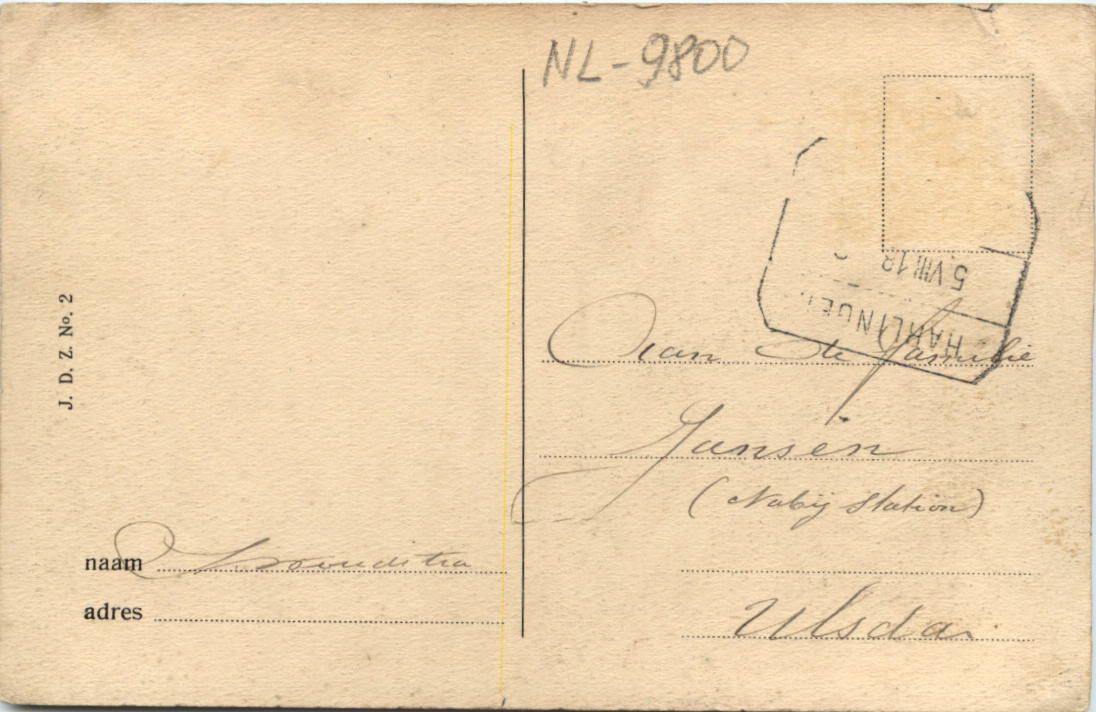 NL-9800
5 VIII 18
HARLINGEN
J. D. Z. No. 2
Aan de familie
Jansen
(Nabij Station)
naam
adres